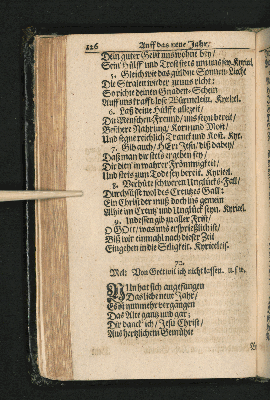 226 Auff das neue Jahr/
Dein guter Geist uns wohne bey/
Sein Hülff und Trost stets um uns sey Kyriel.
5. Gleich wie das güldne Sonnen-Licht
Die Stralen wieder zu uns richt:
So richte deinen Gnaden-Schein
Auff uns Kyriel.
6. Laß deine Hülffe allezeit/
Du Menschen-Freund/ uns seyn bereit/
Beschere Nahrung/ Korn und Most/
Und segne reichlich Tranck und Kost. Kyr.
7. Gib auch/ HErr JEsu/ biß dabey/
Daß man dir stets ergeben sey/
Die den in wahrer Frömmigkeit/
Und stets zum Tode sey bereit. Kyriel.
8. Behüte schweren Unglücks-Fall/
Durchsüß wol des Creutzes Gall:
Ein Christ der muß doch ins gemein
Allhie in Creutz und Unglück seyn. Kyriel.
9. Indessen gib zu aller Frist/
O GOtt/ was uns ersprießlich ist/
Biß wir einmahl nach dieser Zeit
Eingehen in die Seligkeit. Kyrieleis.
72.
Mel: Von Gott wil ich nicht lassen. u. s. w.
NUn hat sich angefangen
Das liebe neue Jahr/
Es ist nunmehr vergangen
Das Alte gantz und gar;
Dir danck ich/ JEsu Christ/
Aus hertzlichem Gemühte